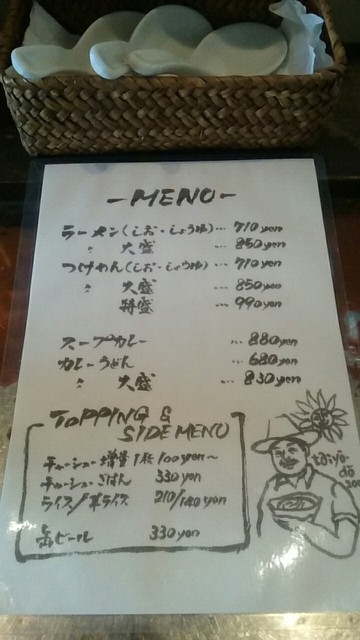 -MENU-
ラーメン(しお・しょうゆ)… 710yen
〃 大盛 … 850yen
つけめん(しお・しょうゆ)… 710yen
〃 大盛 … 850yen
特盛 … 990yen
スープカレー … 880yen
カレーうどん … 680yen
〃 大盛 … 830yen
TOPPING &
SIDE MENU
チャーシュー増量 1枚 100yen〜
チャーシューごはん 330yen
ライス/半ライス 210/140yen
缶ビール 330yen
taiyo